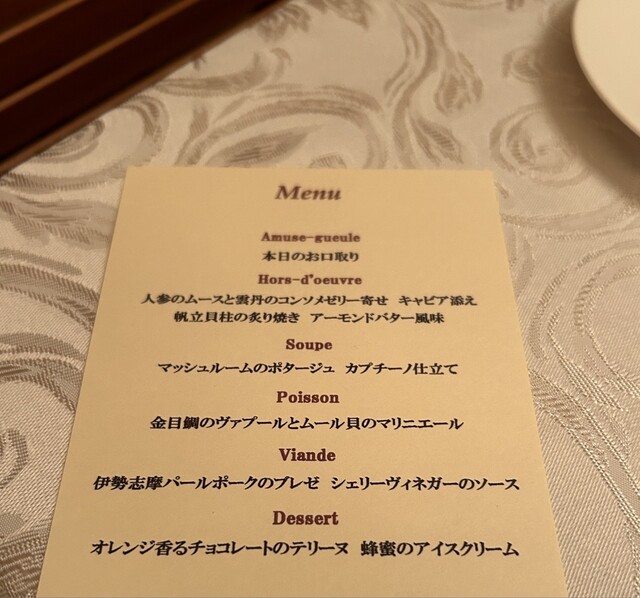 Menu
Amuse-gueule
本日のお口取り
Hors-d'oeuvre
人参のムースと雲丹のコンソメゼリー寄せ キャビア添え
帆立貝柱の炙り焼き アーモンドバター風味
Soupe
マッシュルームのポタージュ カプチーノ仕立て
Poisson
金目鯛のヴァプールとムール貝のマリニエール
Viande
伊勢志摩パールポークのブレゼ シェリーヴィネガーのソース
Dessert
オレンジ香るチョコレートのテリーヌ 蜂蜜のアイスクリーム